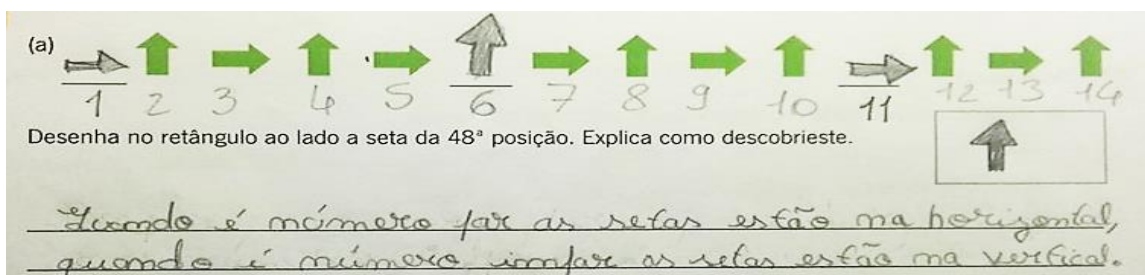 (a)
1 2 3 4 5 6 7 8 9 10 11 12 13 14
Desenha no retângulo ao lado a seta da 48ª posição. Explica como descobrieste.
Quando é número par as setas estão na horizontal,
quando é número impar as setas estão na vertical.